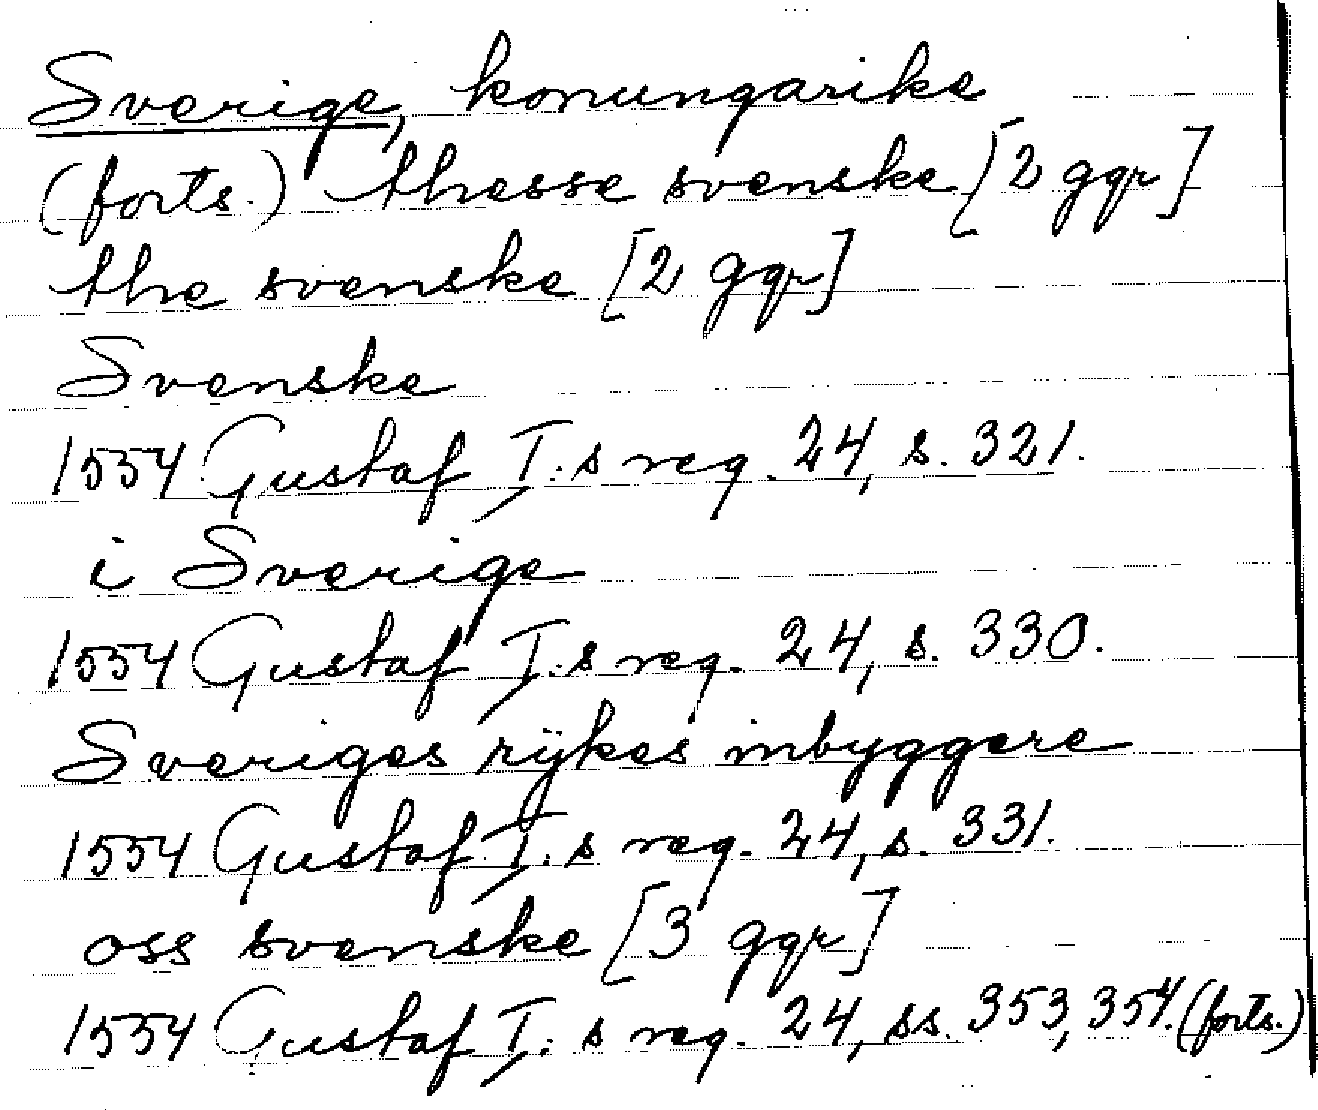 Sverige, konungarike
(forts.) thesse svenske [2 ggr]
the svenske [2 ggr]
Svenske
1554 Gustaf I:s reg. 24, s. 321.
i Sverige
1554 Gustaf I:s reg. 24, s. 330.
Sveriges rijkes inbyggere
1554 Gustaf I:s reg. 24, s. 331.
oss svenske [3 ggr]
1554 Gustaf I:s reg. 24, ss. 353, 354. (forts.)